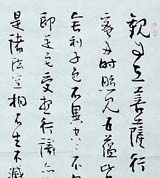 觀自在菩薩行
蜜多時照見五蘊皆
舍利子色不異空空不
即是色受想行識亦
是諸法空相不生不滅